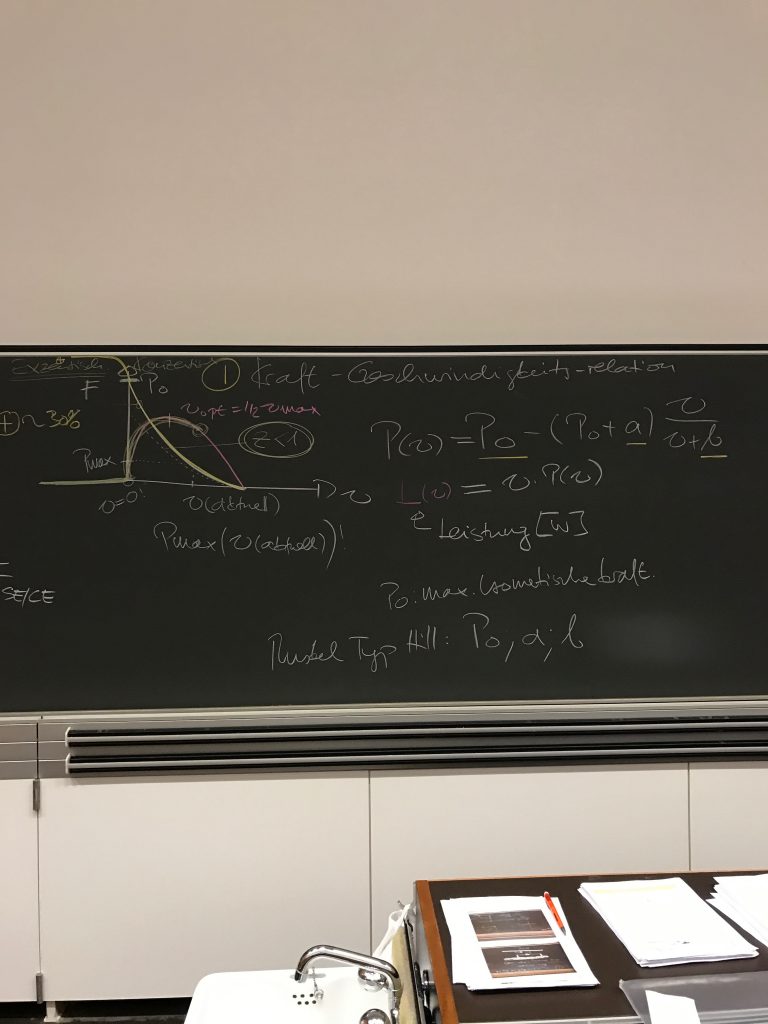 Exzentrisch Konzentrisch
① Kraft - Geschwindigkeits-relation
F P₀
⊕ ~30%
v opt = 1/2 v max
z < 1
P(v) = P₀ - (P₀ + a) v/(v+b)
Pmax
v=0!
v(aktuell)
v
L(v) = v · P(v)
Leistung [W]
Pmax(v(aktuell))!
SE/CE
P₀: max. isometrische Kraft.
Muskel Typ Hill: P₀, a, b